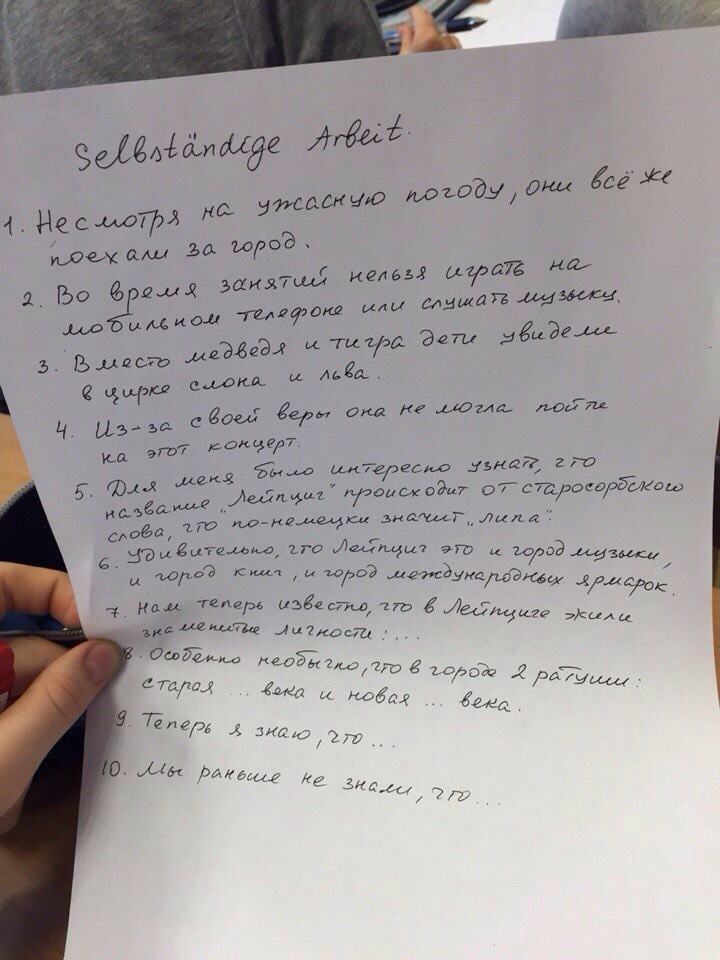 Selbständige Arbeit.
1. Несмотря на ужасную погоду, они всё же
поехали за город.
2. Во время занятий нельзя играть на
мобильном телефоне или слушать музыку.
3. Вместо медведя и тигра дети увидели
в цирке слона и льва.
4. Из-за своей веры она не могла пойти
на этот концерт.
5. Для меня было интересно узнать, что
название „Лейпциг" происходит от старосорбского
слова, что по-немецки значит „липа".
6. Удивительно, что Лейпциг это и город музыки,
и город книг, и город международных ярмарок.
7. Нам теперь известно, что в Лейпциге жили
знаменитые личности: ...
8. Особенно необычно, что в городе 2 ратуши:
старая ... века и новая ... века.
9. Теперь я знаю, что ...
10. Мы раньше не знали, что ...